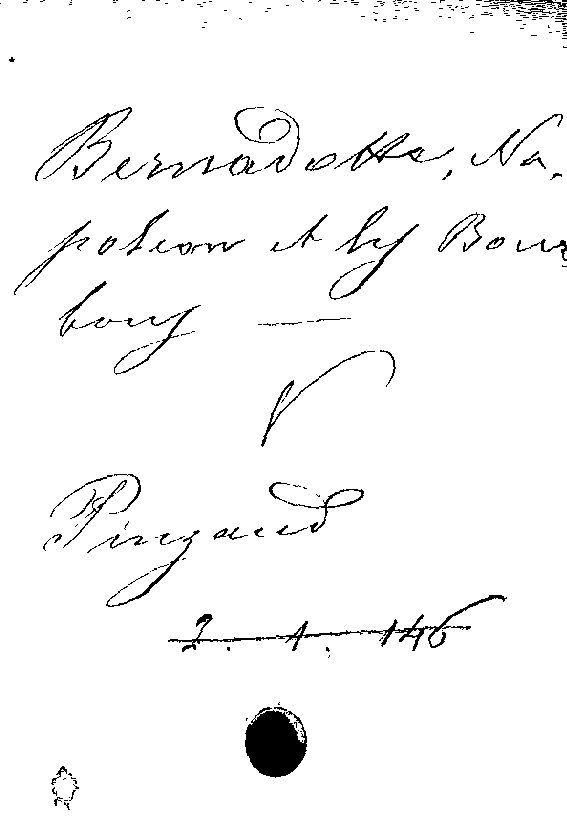 Bernadotte, Na,
poleon et les Bour
bons —
Pingaud
2. 1. 146